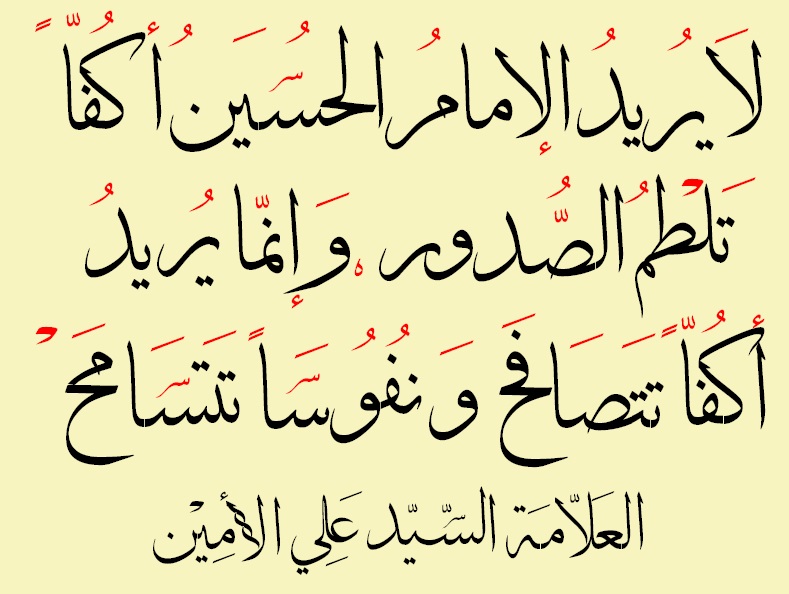 لَا يُرِيدُ الإمامُ الحُسَين أُكُفّاً
تَلْطمُ الصُّدور وَإنّما يُريدُ
أكُفّاً تتَصَافَح وَنُفُوسَاً تَتَسَامَحْ
العَلاّمَة السَّيّد عَلِي الأَمِيْن